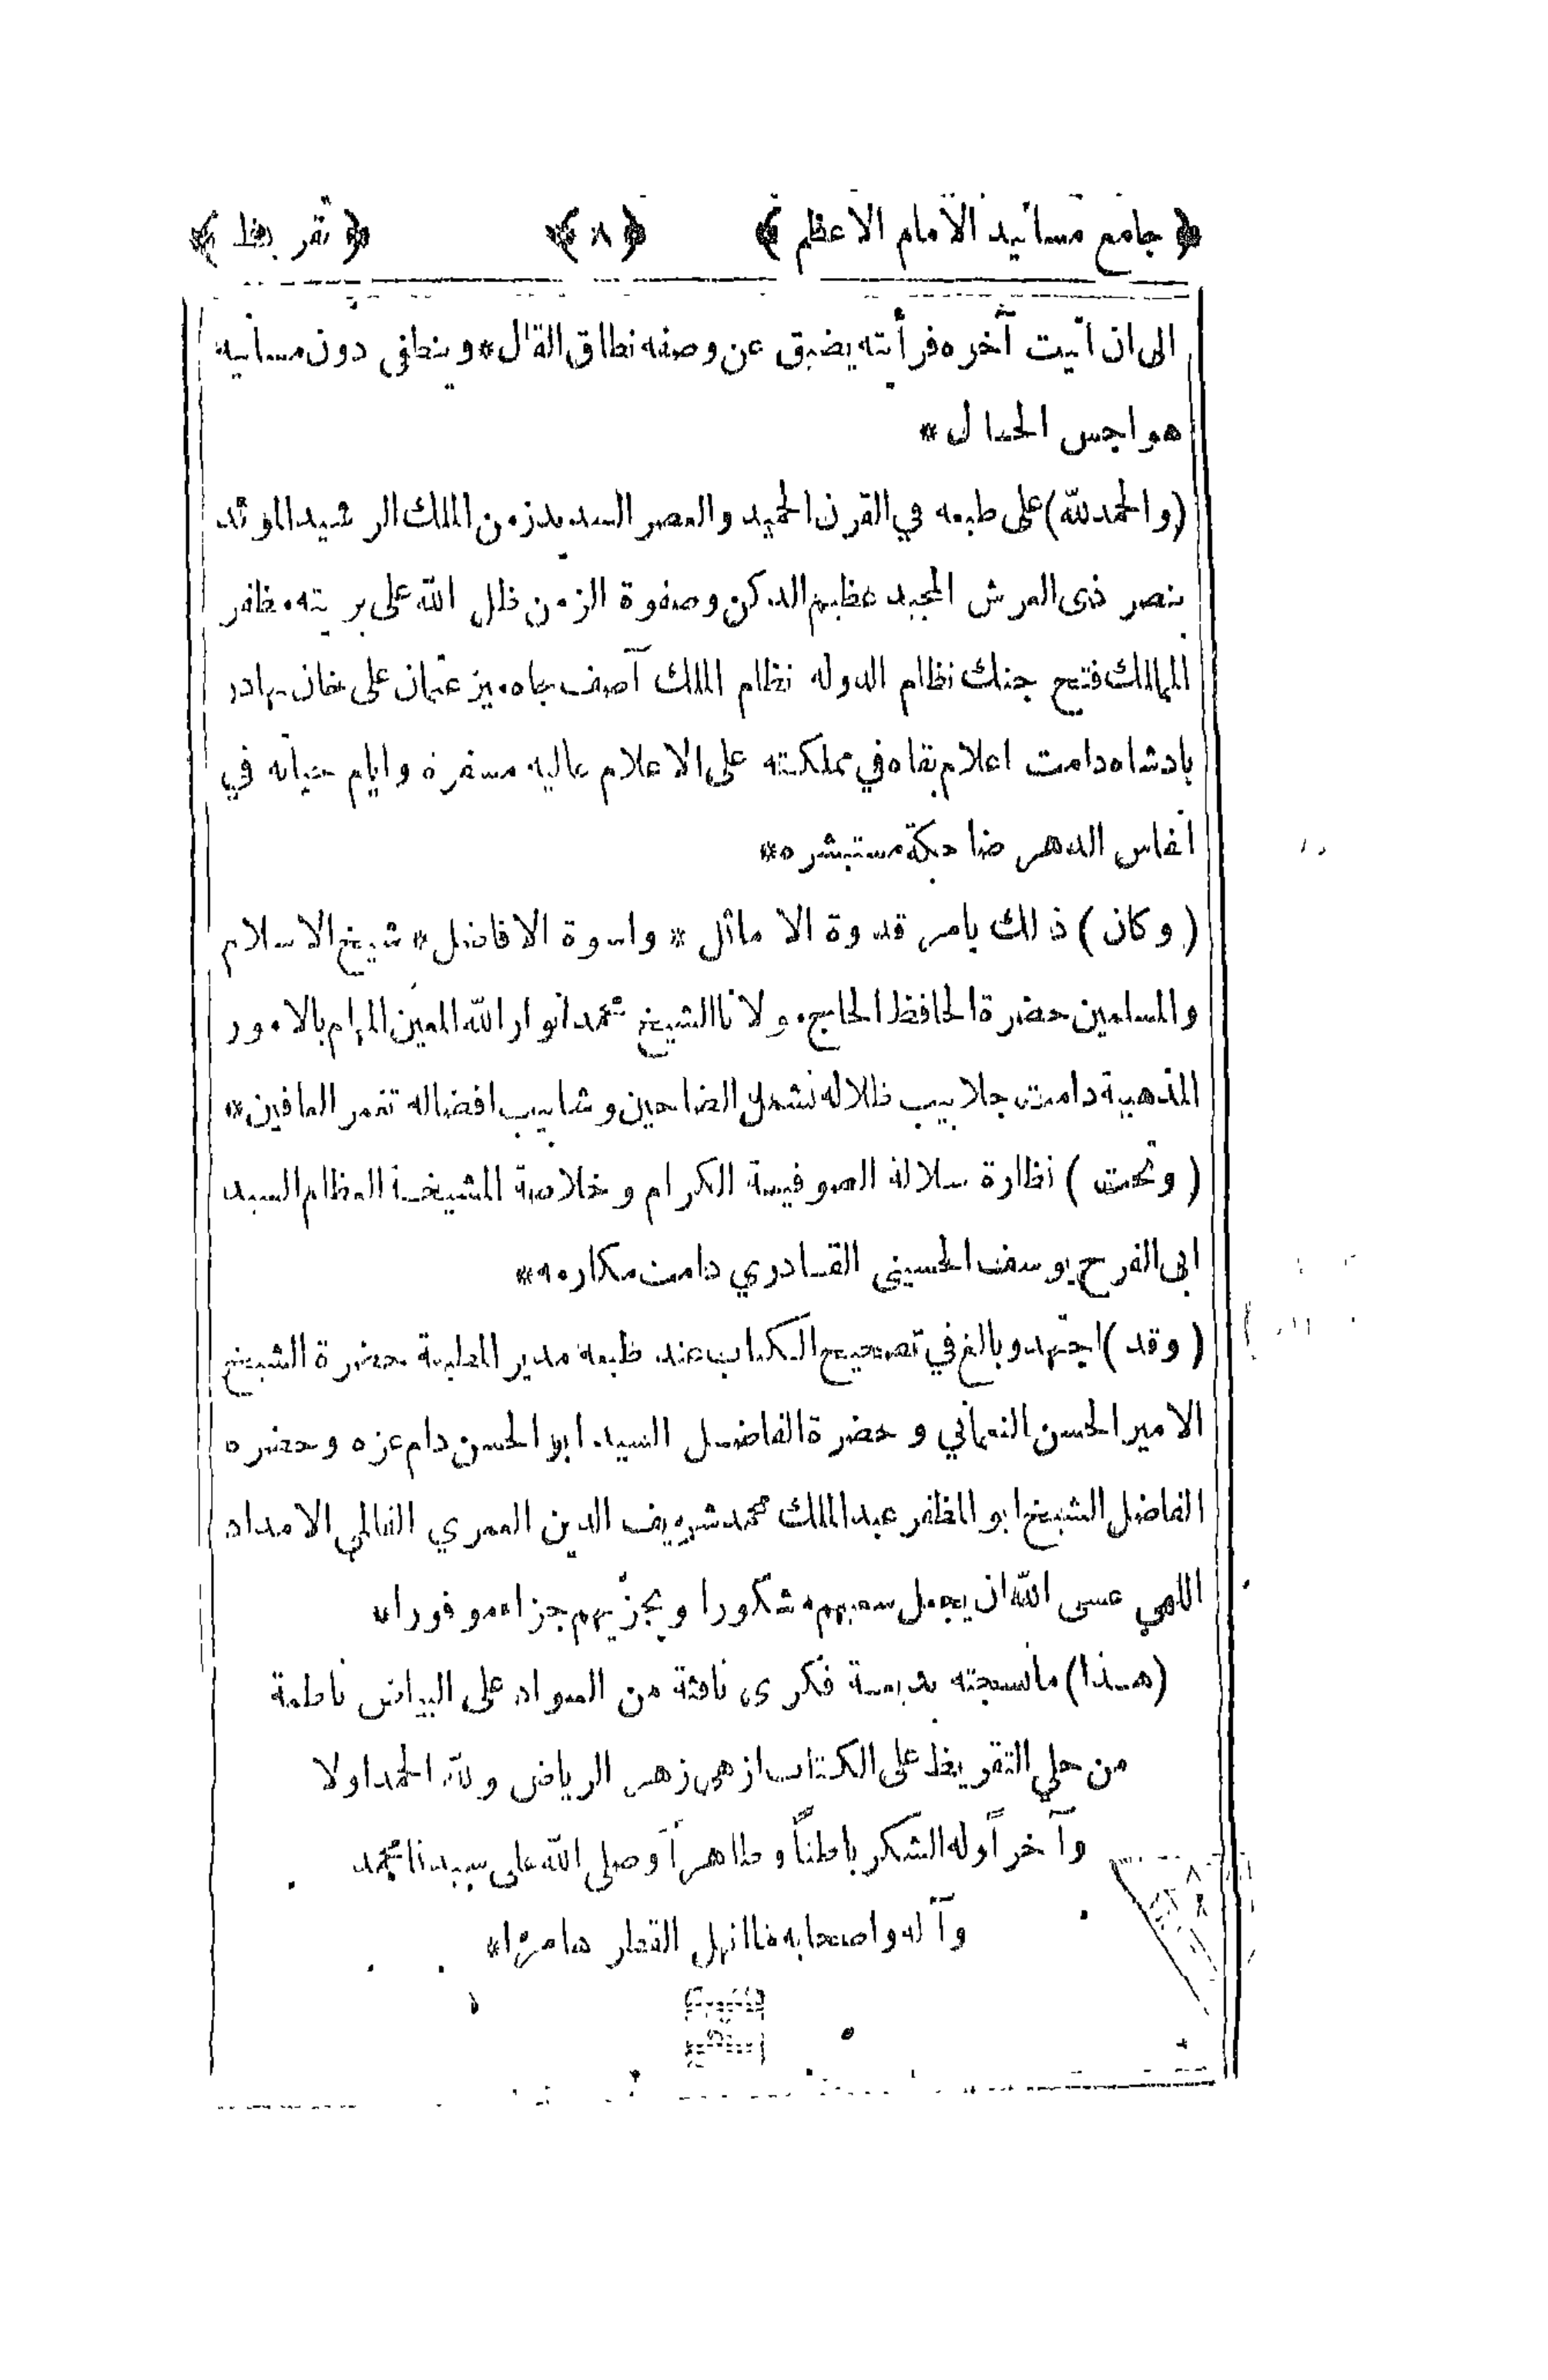 ﴿ جامع مسانيد الامام الاعظم ﴾ ﴿ ٨ ﴾ ﴿ تقريظ ﴾
الى ان اتيت آخره فرأيته يضيق عن وصفه نطاق القال * وينطفى دون مسانيه
هواجس الخيال *
(والحمد لله) على طبعه في القرن الحميد والعصر السديد زمن الملك الرشيد الموئد
بنصر ذى العرش المجيد عظيم الدكن وصفوة الزمن ظل الله على بريته مظفر
الممالك فتح جنك نظام الدوله نظام الملك آصف جاه مير عثمان على خان بهادر
بادشاه دامت اعلام بقاه في مملكته على الاعلام عاليه مسفره وايام حياته في
انفاس الدهر ضاحكة مستبشره *
(وكان) ذلك بامر قدوة الاماثل * واسوة الافاضل * شيخ الاسلام
والمسلمين حضرة الحافظ الحاج مولانا الشيخ محمد انوار الله المعين المهام بالامور
المذهبية دامت جلابيب ظلاله تشمل الضاحين وشابيب افضاله تغمر العافين *
(وتحت) نظارة سلالة الصوفية الكرام وخلاصة المشيخة العظام السيد
ابى الفرح يوسف الحسينى القادري دامت مكارمه *
(وقد) اجتهد وبالغ في تصحيح الكتاب عند طبعه مدير المطبعة حضرة الشيخ
الامير الحسن النعماني وحضرة الفاضل السيد ابو الحسن دام عزه وحضره
الفاضل الشيخ ابو المظفر عبد الملك محمد شريف الدين العمري الفالمي الامداد
اللهي عسى الله ان يجعل سعيهم مشكورا ويجزيهم جزاء موفورا *
(هذا) ما نسجته بديهة فكرى نافثة من السواد على البياض ناطمة
من حلي التقريظ على الكتاب ازهى زهر الرياض ولله الحمد اولا
وآخراً وله الشكر باطناً وظاهراً وصلى الله على سيدنا محمد
وآله واصحابه ما انهل القطار هامرا *